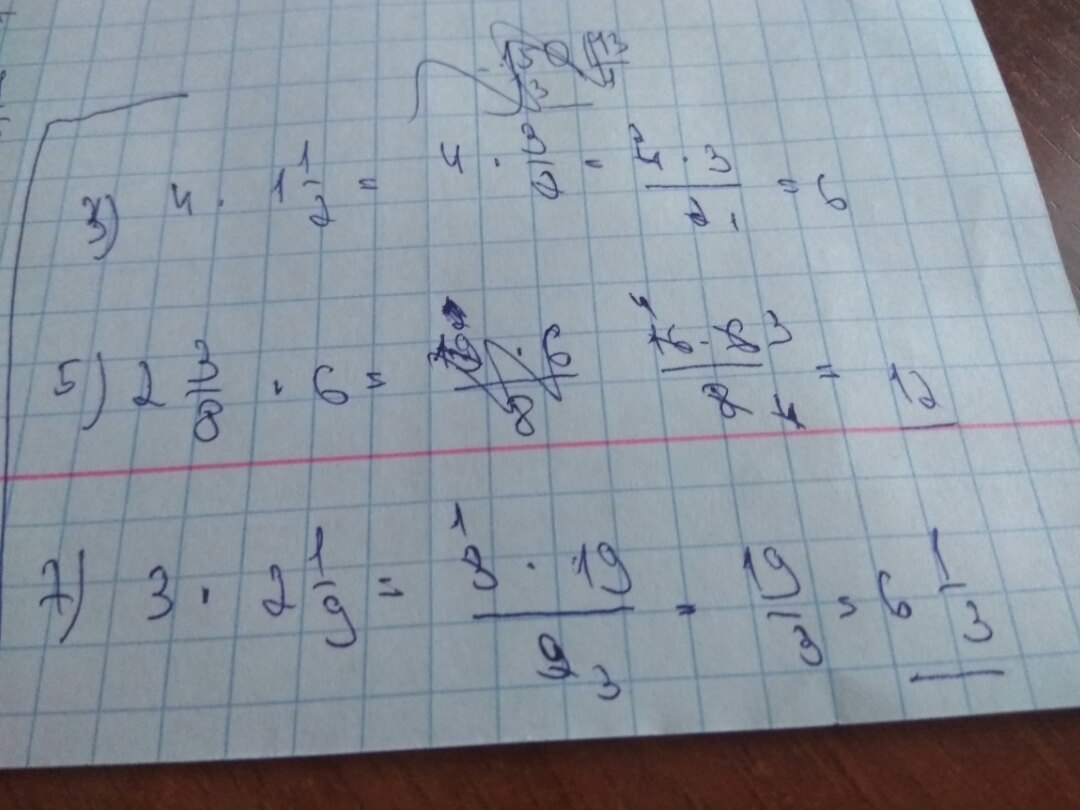 3) 4 · 1 1/2 = 4 · 3/2 = 4 2 · 3 / 2 1 = 6
5) 2 3/8 · 6 = 6 / 8 16 4 · 6 3 / 8 4 = 12
7) 3 · 2 1/9 = 3 1 · 19 / 9 3 = 19/3 = 6 1/3